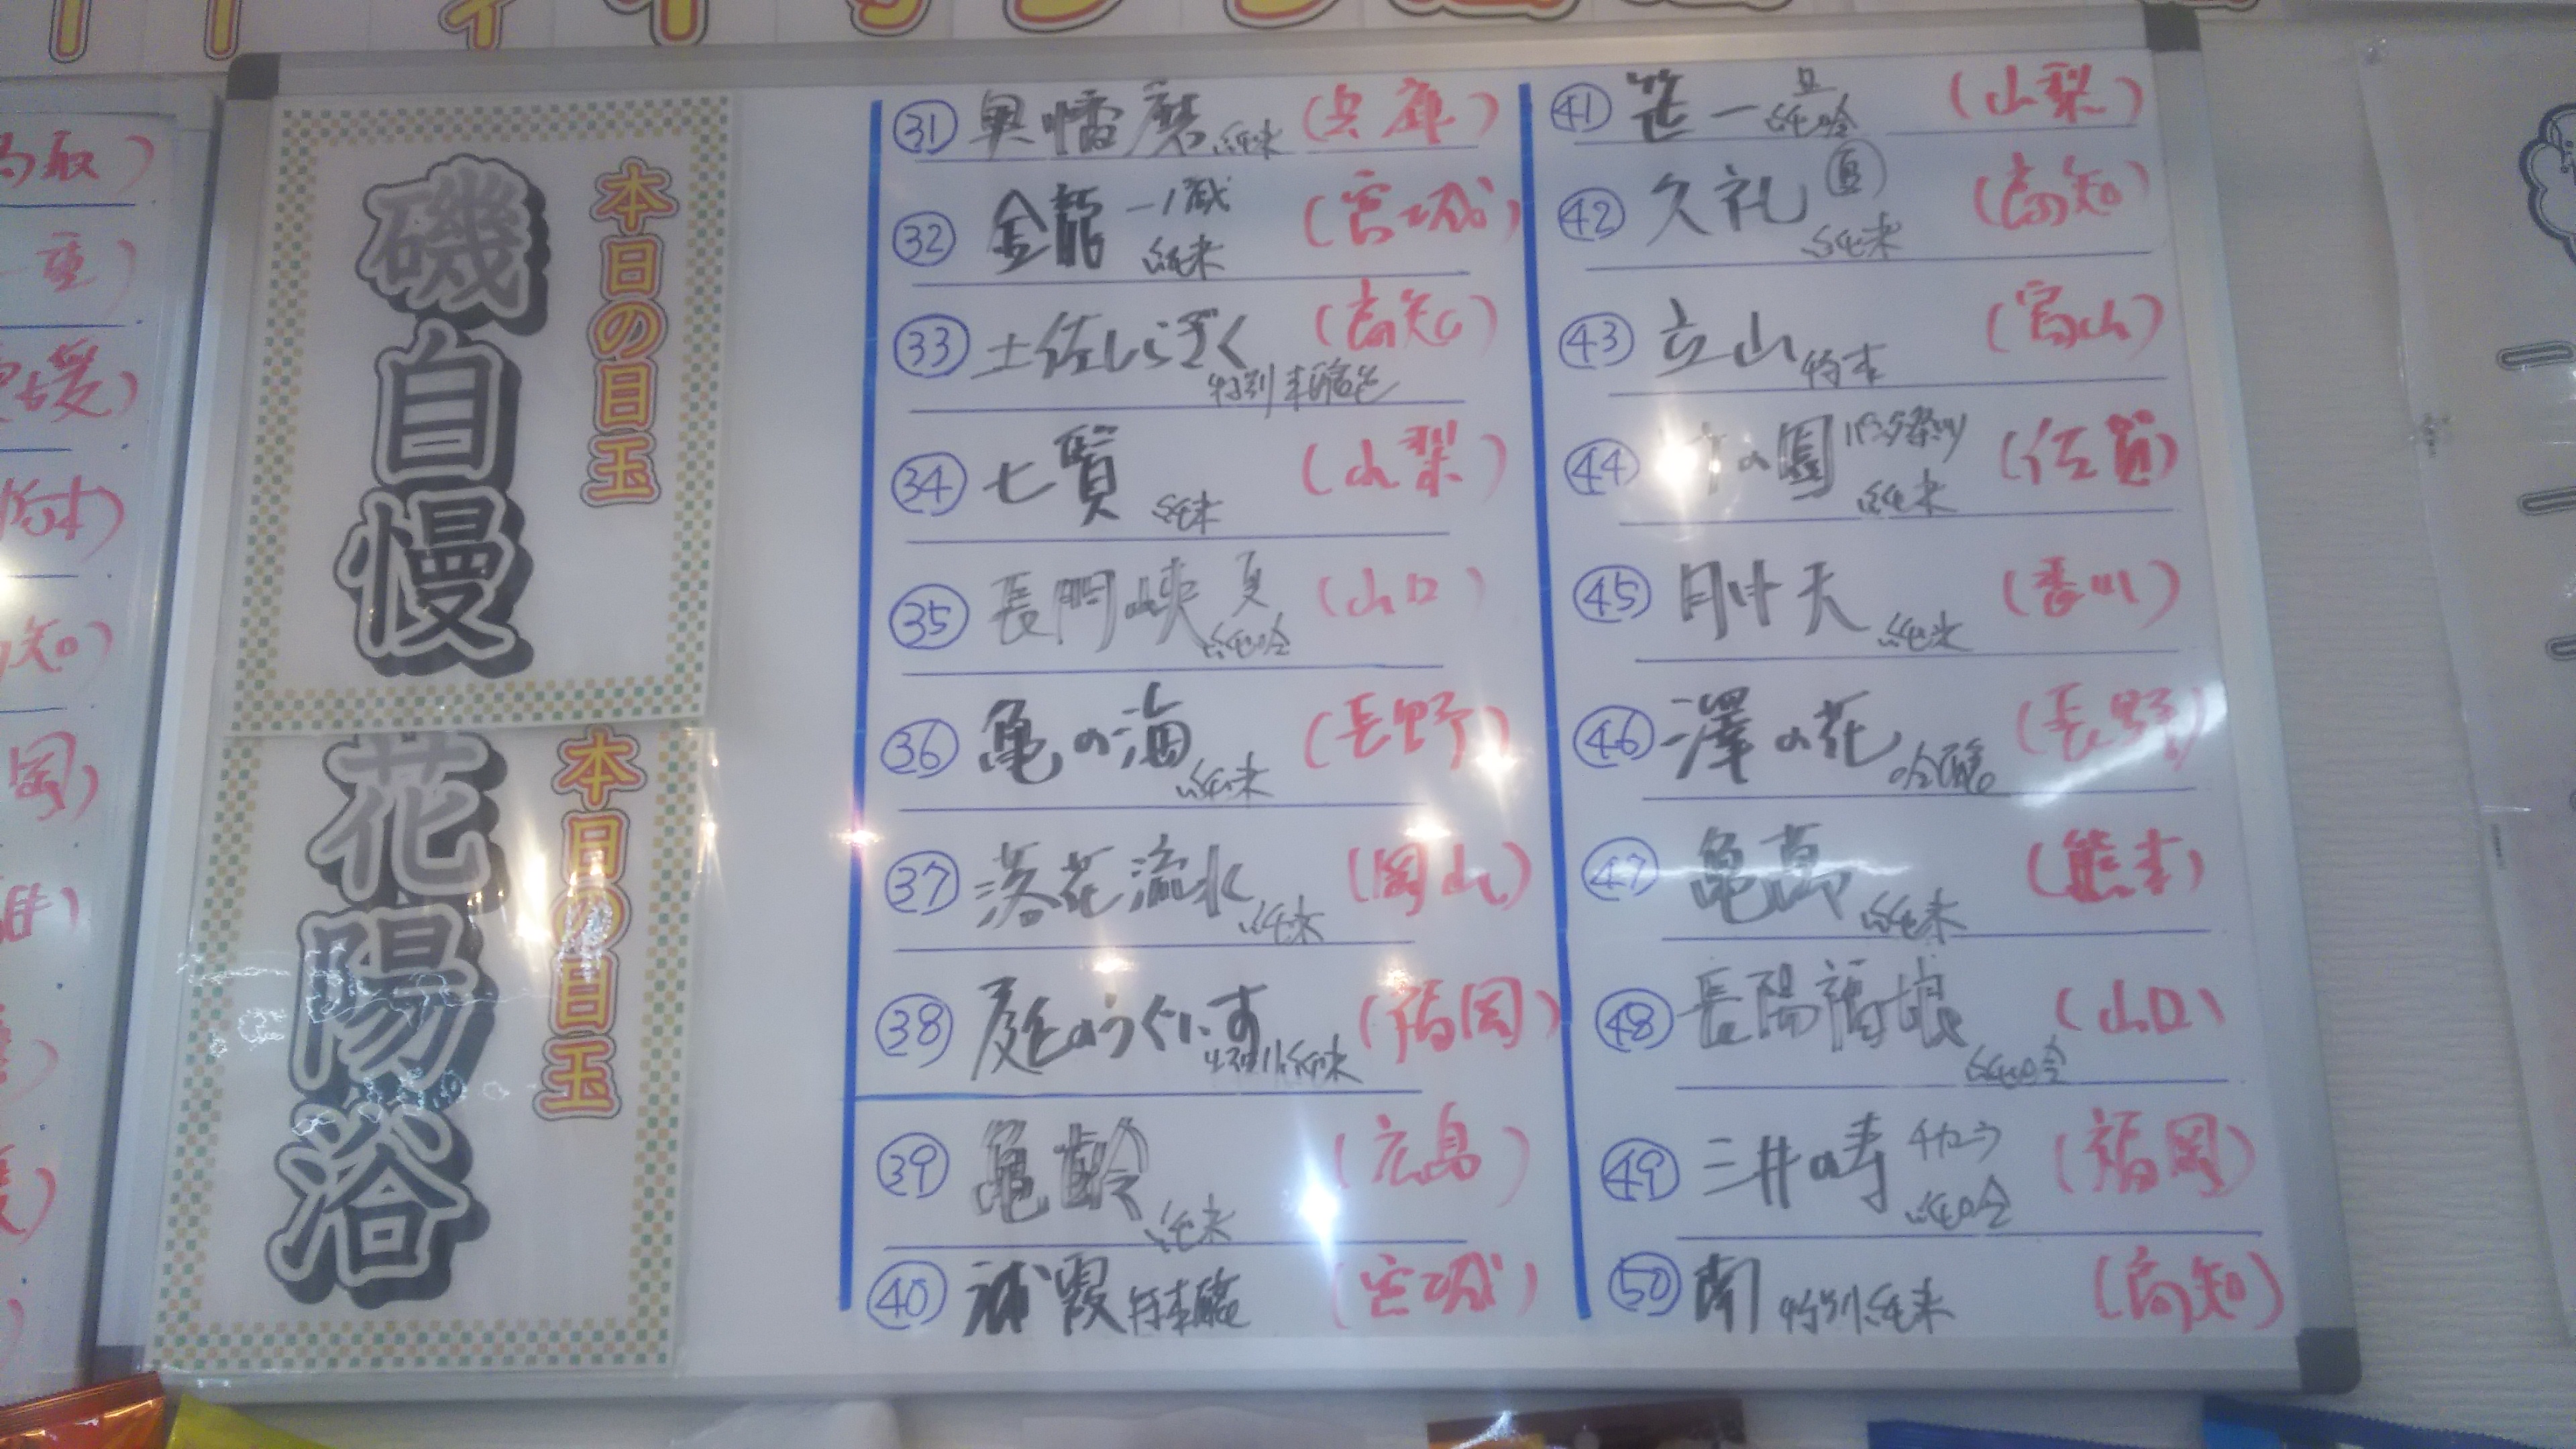 本日の目玉
磯自慢
本日の目玉
花陽浴
㉛ 奥播磨 純米 (兵庫)
㉜ 金龍 一ノ蔵 純米 (宮城)
㉝ 土佐しらぎく 特別本醸造 (高知)
㉞ 七賢 純米 (山梨)
㉟ 長門峡 夏 純吟 (山口)
㊱ 亀の海 純米 (長野)
㊲ 落花流水 純米 (岡山)
㊳ 庭のうぐいす 特別純米 (福岡)
㊴ 亀齢 純米 (広島)
㊵ 浦霞 本醸 (宮城)
㊶ 笹一 純吟 (山梨)
㊷ 久礼 夏 純米 (高知)
㊸ 立山 特本 (富山)
㊹ の園 純米 (佐賀)
㊺ 川鶴 純米 (香川)
㊻ 澤の花 吟醸 (長野)
㊼ 亀萬 純米 (熊本)
㊽ 長陽福娘 純吟 (山口)
㊾ 三井の寿 チカーラ 純吟 (福岡)
㊿ 南 特別純米 (高知)
鳥取)
重)
愛媛)
栃木)
知)
岡)